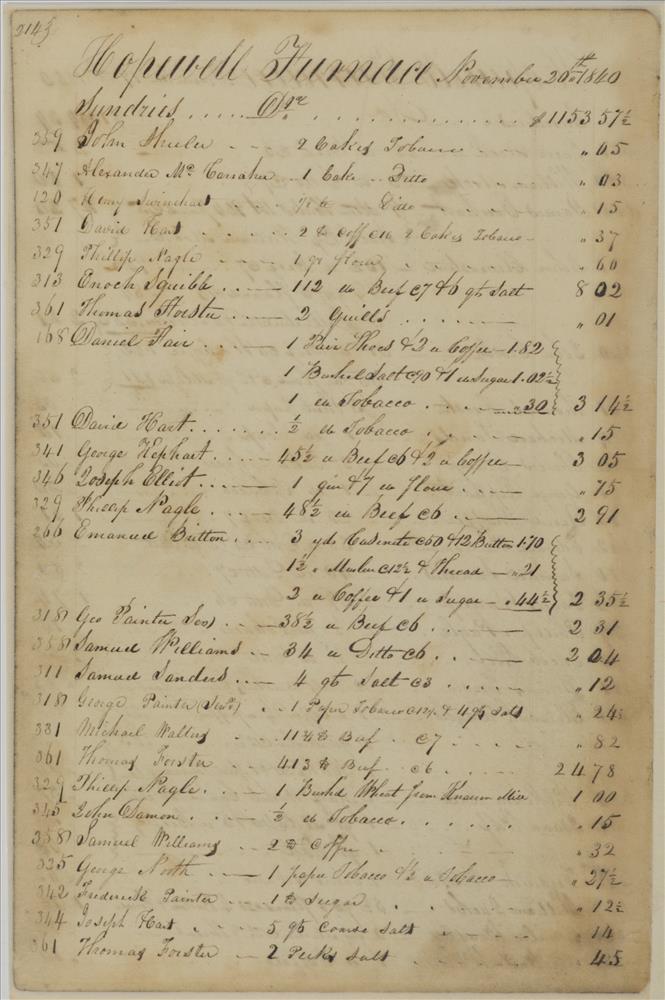 2145
Hopewell Furnace November 20th 1840
Sundries ..... Dr. ............ $1153 57½
359 John Shuler ... 2 Cakes Tobacco ... " 05
347 Alexander Mc 1 Cake .. Ditto " 03
120 Henry Swinehart .... ½ lb Ditto .... " 15
351 David Hart ..... 2 lb Coffee 2 Cakes Tobacco – " 37
329 Phillip Nagle ..... 1 qr flour ..... " 60
313 Enoch Squibb .. — 112 lb Beef c7 & 6 qts Salt 8 02
361 Thomas Forster .. — 2 Quills ...... " 01
168 Daniel Fair .... — 1 Pair Shoes & 2 lb Coffee – 1.82
1 Bushel Salt c70 & 1 lb Sugar 1.02½
1 lb Tobacco ..... " 30 3 14½
351 David Hart ....... ½ lb Tobacco ...... " 15
341 George Hephart .... — 45½ lb Beef c6 & 2 lb Coffee — 3 05
346 Joseph Elliot .... — 1 qr & 7 lb flour .... — " 75
329 Phillip Nagle .... — 48½ lb Beef c6 .. — 2 91
266 Emanuel Britton .... 3 yds Casinete c50 & 12 Button 1.70
1½ " Muslin c12½ & Thread — " 21
2 lb Coffee & 1 lb Sugar — " 44½ 2 35½
318 Geo Painter — 38½ lb Beef c6 .. — 2 31
358 Samuel Williams .. — 34 lb Ditto c6 .. — 2 04
311 Samuel Sanders .. — 4 qts Salt c3 ..... " 12
318 George Painter . 1 Paper Tobacco c12½ & 4 qts Salt " 24½
381 Michael Walters . 11¾ lb Beef .. c7 .... " 82
361 Thomas Forster .. — 413 lb Beef .. c6 .... 24 78
329 Phillip Nagle .. — 1 Bushel Wheat from 1 00
345 John Samon .. — ½ lb Tobacco ...... " 15
358 Samuel Williams .. — 2 lb Coffee " 32
325 George North .. — 1 paper Tobacco & ½ lb Tobacco — " 27½
342 Frederick Painter .. — 1 lb Sugar .. " 12½
344 Joseph Hart .. — 5 qts Coarse Salt .. " 14
361 Thomas Forster — 2 Pecks Salt .... " 45